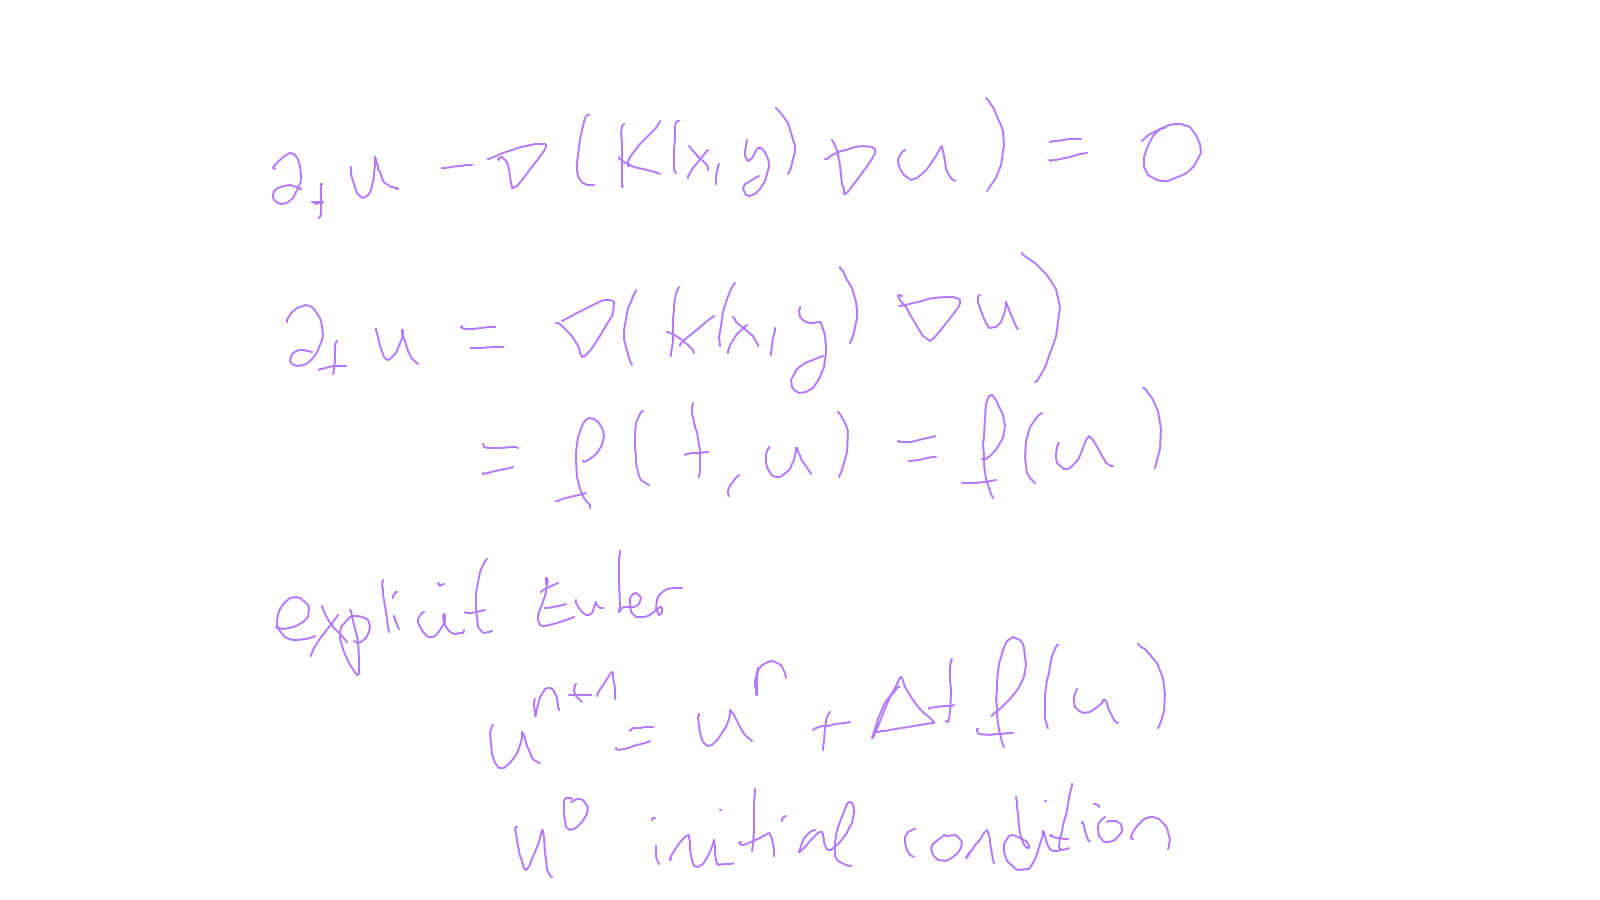 ∂ₜu - ∇(K(x,y)∇u) = 0
∂ₜu = ∇(K(x,y)∇u)
= f(t,u) = f(u)
explicit Euler
uⁿ⁺¹ = uⁿ + Δt f(u)
u⁰ initial condition